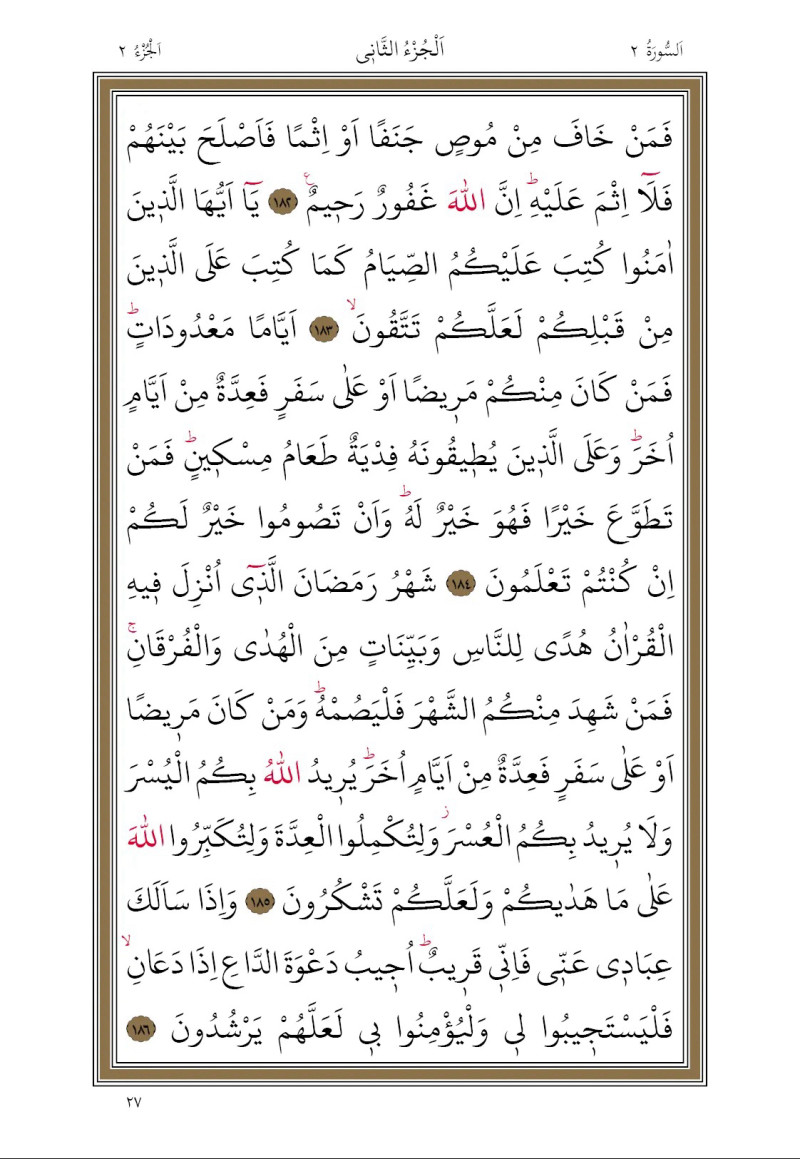 اَلسُّورَةُ ٢ اَلْجُزْءُ الثَّانٖى اَلْجُزْءُ ٢
فَمَنْ خَافَ مِنْ مُوصٍ جَنَفًا اَوْ اِثْمًا فَاَصْلَحَ بَيْنَهُمْ
فَلَٓا اِثْمَ عَلَيْهِۜ اِنَّ اللّٰهَ غَفُورٌ رَحٖيمٌࣖ ١٨٢ يَٓا اَيُّهَا الَّذٖينَ
اٰمَنُوا كُتِبَ عَلَيْكُمُ الصِّيَامُ كَمَا كُتِبَ عَلَى الَّذٖينَ
مِنْ قَبْلِكُمْ لَعَلَّكُمْ تَتَّقُونَۙ ١٨٣ اَيَّامًا مَعْدُودَاتٍۜ
فَمَنْ كَانَ مِنْكُمْ مَرٖيضًا اَوْ عَلٰى سَفَرٍ فَعِدَّةٌ مِنْ اَيَّامٍ
اُخَرَۜ وَعَلَى الَّذٖينَ يُطٖيقُونَهُ فِدْيَةٌ طَعَامُ مِسْكٖينٍۜ فَمَنْ
تَطَوَّعَ خَيْرًا فَهُوَ خَيْرٌ لَهُۜ وَاَنْ تَصُومُوا خَيْرٌ لَكُمْ
اِنْ كُنْتُمْ تَعْلَمُونَ ١٨٤ شَهْرُ رَمَضَانَ الَّذٖٓى اُنْزِلَ فٖيهِ
الْقُرْاٰنُ هُدًى لِلنَّاسِ وَبَيِّنَاتٍ مِنَ الْهُدٰى وَالْفُرْقَانِۚ
فَمَنْ شَهِدَ مِنْكُمُ الشَّهْرَ فَلْيَصُمْهُۜ وَمَنْ كَانَ مَرٖيضًا
اَوْ عَلٰى سَفَرٍ فَعِدَّةٌ مِنْ اَيَّامٍ اُخَرَۜ يُرٖيدُ اللّٰهُ بِكُمُ الْيُسْرَ
وَلَا يُرٖيدُ بِكُمُ الْعُسْرَؗ وَلِتُكْمِلُوا الْعِدَّةَ وَلِتُكَبِّرُوا اللّٰهَ
عَلٰى مَا هَدٰيكُمْ وَلَعَلَّكُمْ تَشْكُرُونَ ١٨٥ وَاِذَا سَاَلَكَ
عِبَادٖى عَنّٖى فَاِنّٖى قَرٖيبٌۜ اُجٖيبُ دَعْوَةَ الدَّاعِ اِذَا دَعَانِۙ
فَلْيَسْتَجٖيبُوا لٖى وَلْيُؤْمِنُوا بٖى لَعَلَّهُمْ يَرْشُدُونَ ١٨٦
٢٧